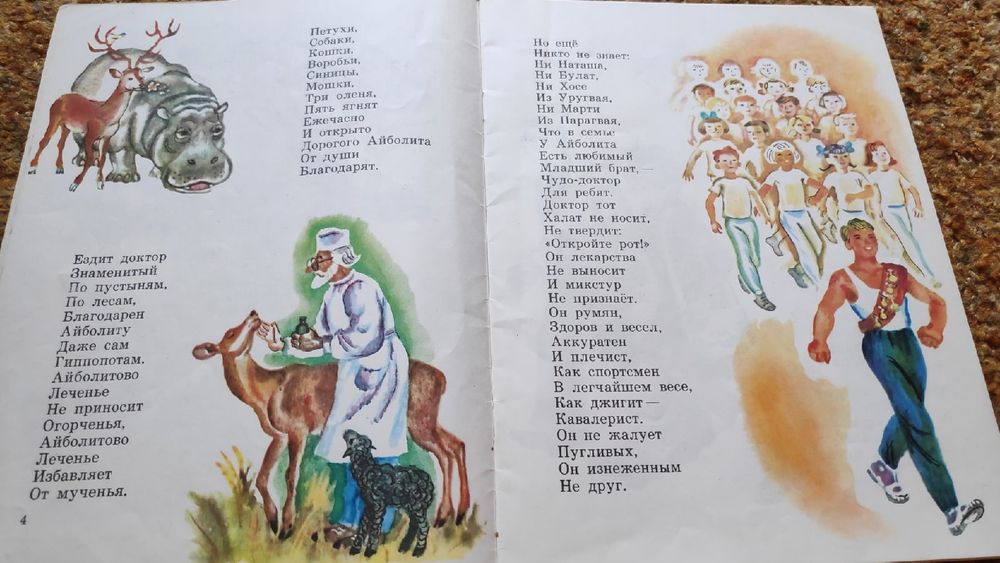 Ездит доктор
Знаменитый
По пустыням,
По лесам,
Благодарен
Айболиту
Даже сам
Гиппопотам.
Айболитово
Леченье
Не приносит
Огорченья,
Айболитово
Леченье
Избавляет
От мученья.
4
Петухи,
Собаки,
Кошки,
Воробьи,
Синицы,
Мошки,
Три оленя,
Пять ягнят
Ежечасно
И открыто
Дорогого Айболита
От души
Благодарят.
Но ещё
Никто не знает:
Ни Наташа,
Ни Булат,
Ни Хосе
Из Уругвая,
Ни Марти
Из Парагвая,
Что в семье
У Айболита
Есть любимый
Младший брат,—
Чудо-доктор
Для ребят.
Доктор тот
Халат не носит,
Не твердит:
«Откройте рот!»
Он лекарства
Не выносит
И микстур
Не признаёт.
Он румян,
Здоров и весел,
Аккуратен
И плечист,
Как спортсмен
В легчайшем весе,
Как джигит—
Кавалерист.
Он не жалует
Пугливых,
Он изнеженным
Не друг.